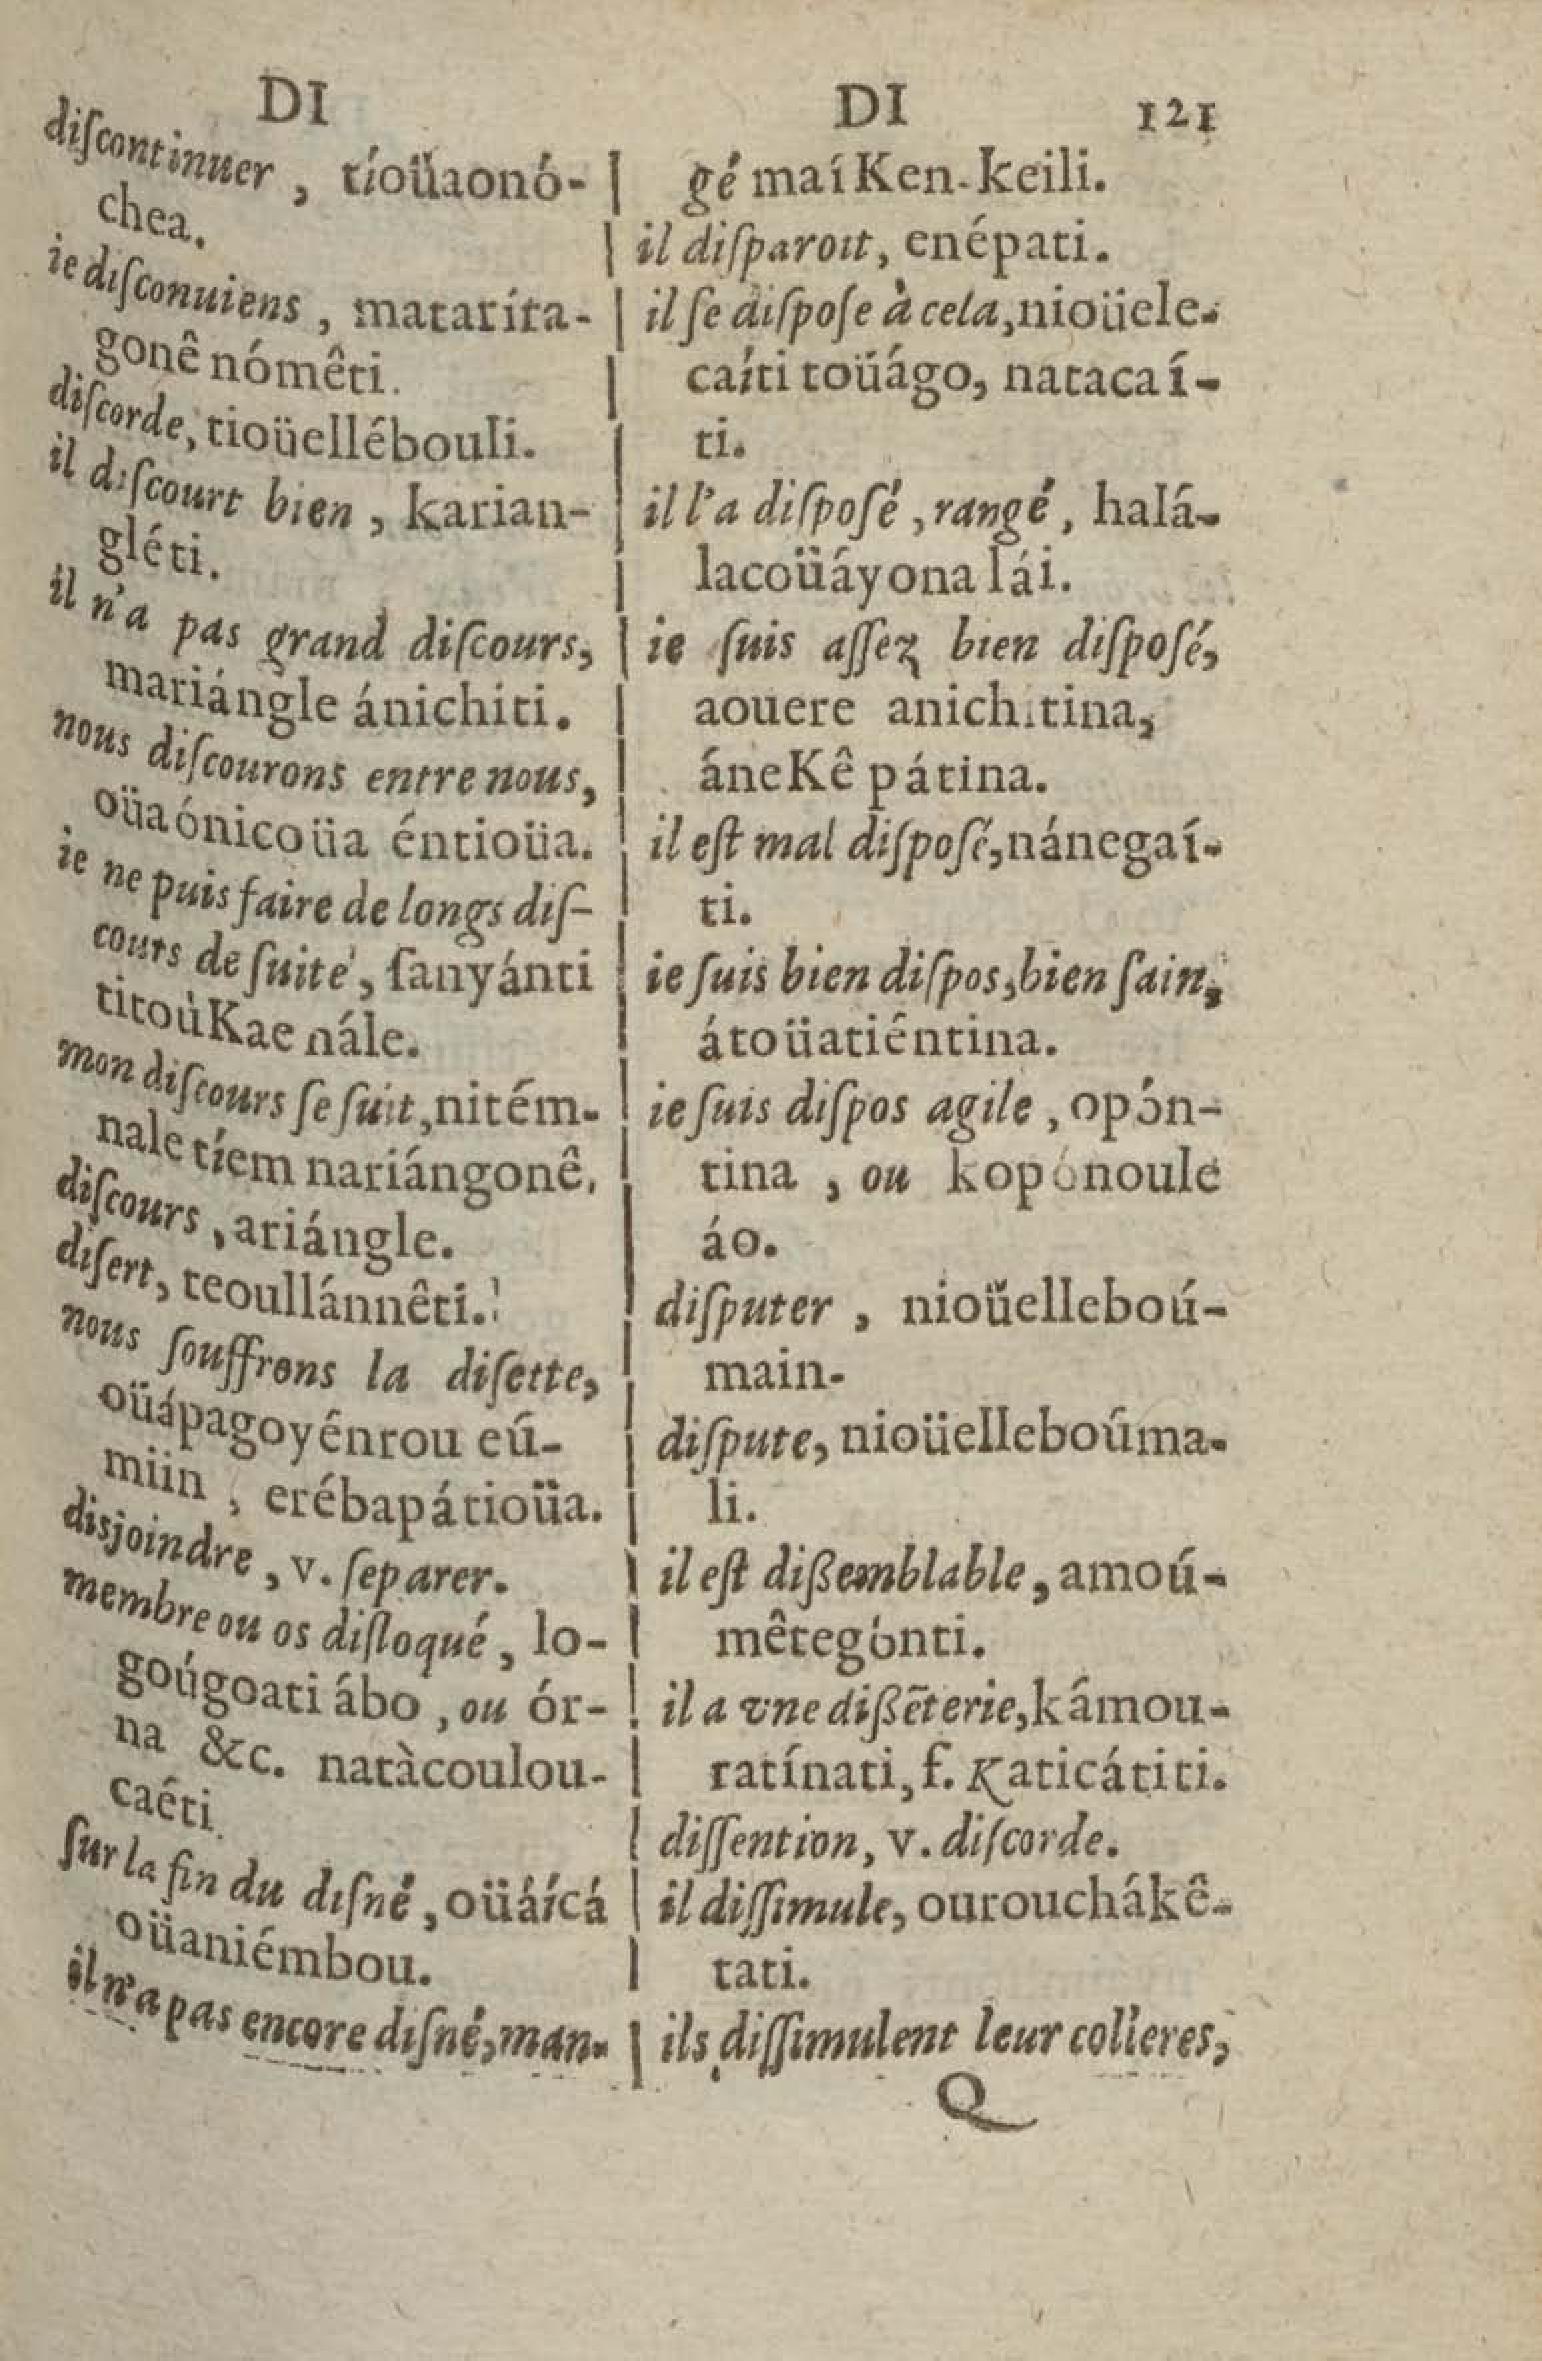 DI
diſcontinuer, tíoüaonó-
chea.
ie diſconuiens, mataríta-
gonê nómêti.
diſcorde, tioüellébouli.
il diſcourt bien, karian-
gléti.
il n'a pas grand diſcours,
mariángle ánichiti.
nous diſcourons entre nous,
oüaónicoüa éntioüa.
ie ne puis faire de longs diſ-
cours de ſuite, ſanyánti
titoùKae nále.
mon diſcours ſe ſuit, nitém-
nale tíem nariángonê.
diſcours, ariángle.
diſert, teoullánnêti.
nous ſouffrons la diſette,
oüápagoyénrou eú-
miin, erébapátioüa.
disjoindre, v. ſeparer.
membre ou os diſloqué, lo-
goúgoati ábo, ou ór-
na &c. natàcoulou-
caéti.
ſur la fin du diſné, oüáícá
oüaniémbou.
il n'a pas encore diſné, man-
DI 121
gé maíKen-keili.
il diſparoit, enépati.
il ſe diſpoſe à cela, nioüele-
caíti toüágo, natacaí-
ti.
il l'a diſpoſé, rangé, halá-
lacoüáyona lái.
ie ſuis aſſez bien diſpoſé,
aouere anichitina,
áneKê pátina.
il eſt mal diſpoſé, nánegaí-
ti.
ie ſuis bien diſpos, bien ſain,
átoüatiêntina.
ie ſuis diſpos agile, opón-
tina, ou kopónoule
áo.
diſputer, nioüelleboú-
main-
diſpute, nioüelleboúma-
li.
il eſt dißemblable, amoú-
mêtegónti.
il a vne dißēterie, kámou-
ratínati, f. Katicátiti.
diſſention, v. diſcorde.
il diſſimule, ourouchákê-
tati.
ils diſſimulent leur colieres,
Q